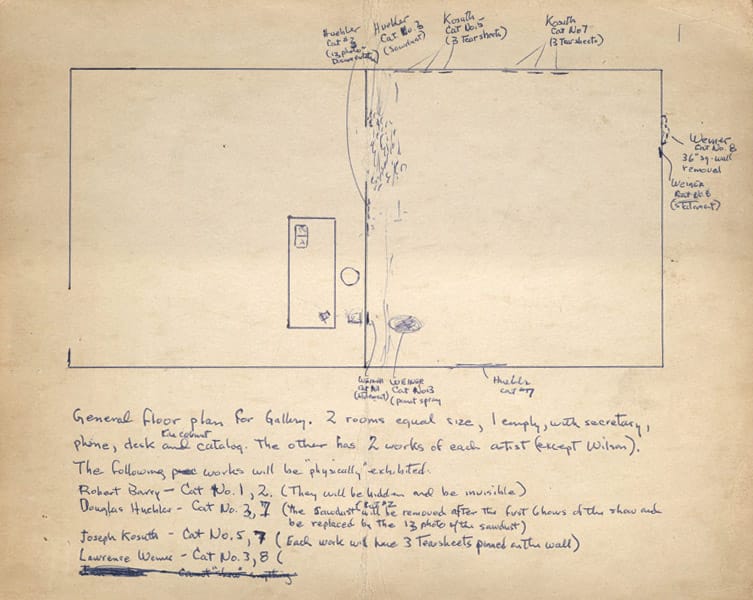 Huebler
Cat #2
(13 photo
Documentation)
Huebler
Cat No. 3
(Sawdust)
Kosuth
Cat No. 5
(3 Tear sheets)
Kosuth
Cat No 7
(3 Tear sheets)
Weiner
Cat No. 8
36" sq. wall
removal
Weiner
Cat No. 8
(statement)
Weiner
(statement)
WEINER
Cat No 3
(paint spray
Huebler
Cat #7
General floor plan for Gallery. 2 rooms equal size, 1 empty, with secretary,
fire cabinet
phone, desk and catalog. The other has 2 works of each artist (except Wilson).
The following works will be "physically" exhibited.
Robert Barry - Cat No. 1, 2. (They will be hidden and be invisible)
Douglas Huebler - Cat No. 3, 7 (the sawdust will be removed after the first 6 hours of the show and
be replaced by the 13 photo of the sawdust)
Joseph Kosuth - Cat No. 5, 7 (Each work will have 3 Tearsheets pinned on the wall)
Lawrence Weiner - Cat No. 3, 8 (
Cannot "show" anything